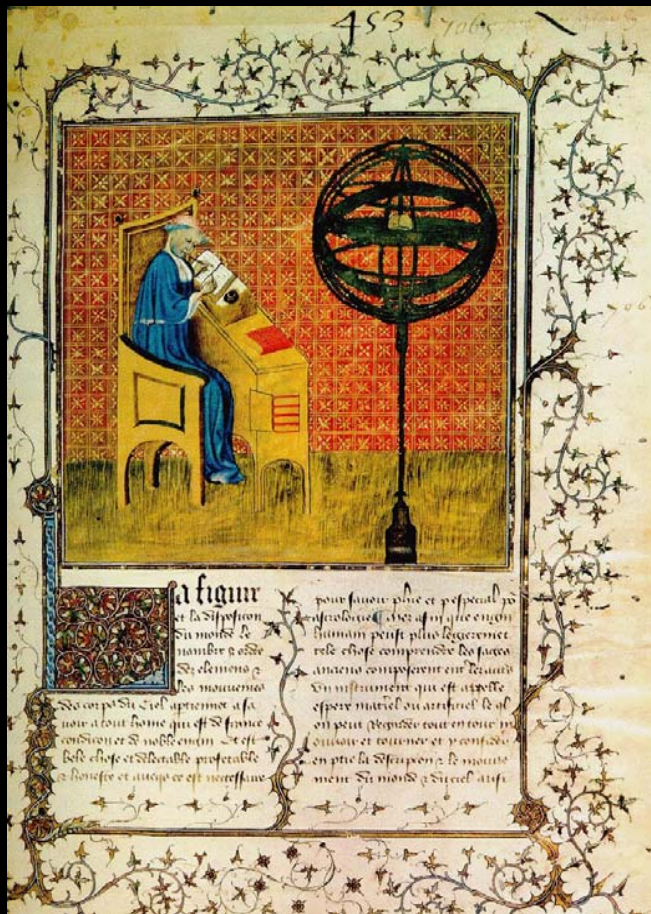 453
7065
a figure
et la disposicon
du monde le
nombre & ordre
des elemens &
les mouvemes
des corps du Ciel aptiennet a sa
voir a tout home qui est de france
condicion et de noble engin Et est
bele chose et delectable profetable
& honeste et avecqs ce est necessaire
pour savoir phie et p especial po
astrologie Mes afin que engin
humain peust plus legierement
tele chose comprendre les sages
anciens composerent
un instrument qui est appelle
espere materiel ou artificiel le ql
on peut Regarder tout entour
mouvoir et tourner et y considerer
en ptie la descripcion & le mouve
ment du monde & du ciel aussi